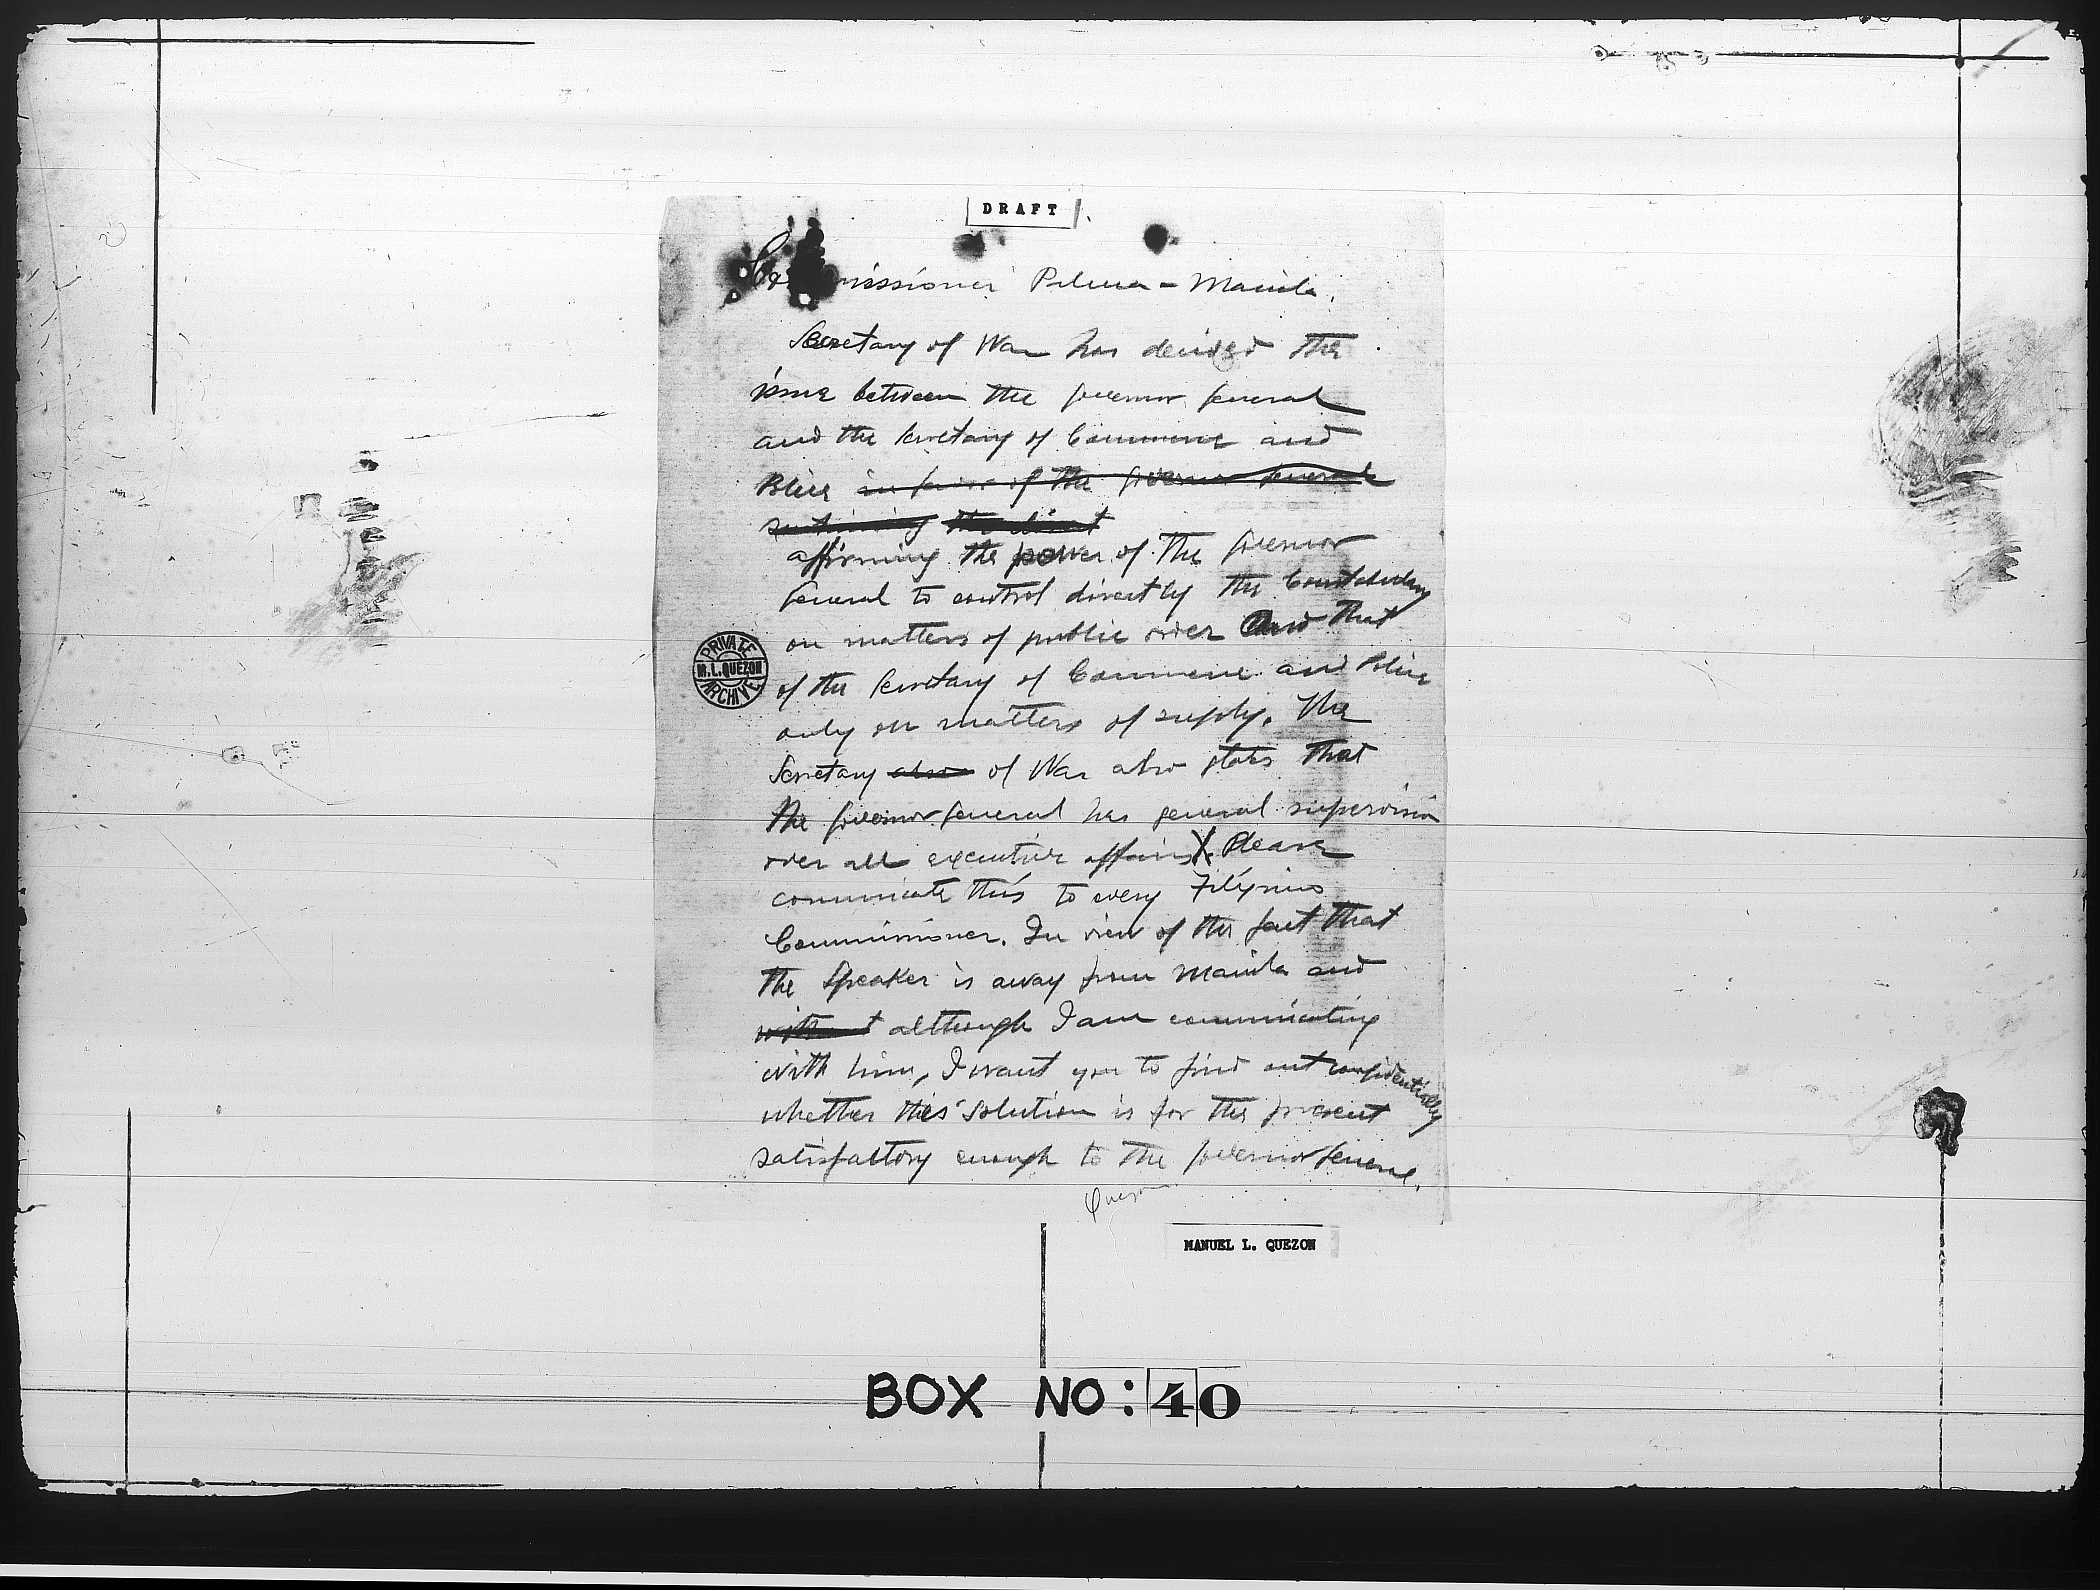 DRAFT
Commissioner Palma - Manila.
Secretary of War has decided the
issue between the Governor General
and the Secretary of Commerce and
Police in favor of the Governor General
sustaining
affirming the power of the Governor
General to control directly the Constabulary
on matters of public order and that
of the Secretary of Commerce and Police
only on matters of supply. The
Secretary also of War also states that
the Governor General has general supervision
over all executive affairs. Please
comunicate this to every Filipino
Commissioner. In view of the fact that
the Speaker is away from Manila and
without although I am comunicating
with him, I want you to find out confidentially
whether this solution is for the present
satisfactory enough to the Governor General.
Quezon
PRIVATE
M.L. QUEZON
ARCHIVE
MANUEL L. QUEZON
BOX NO: 40